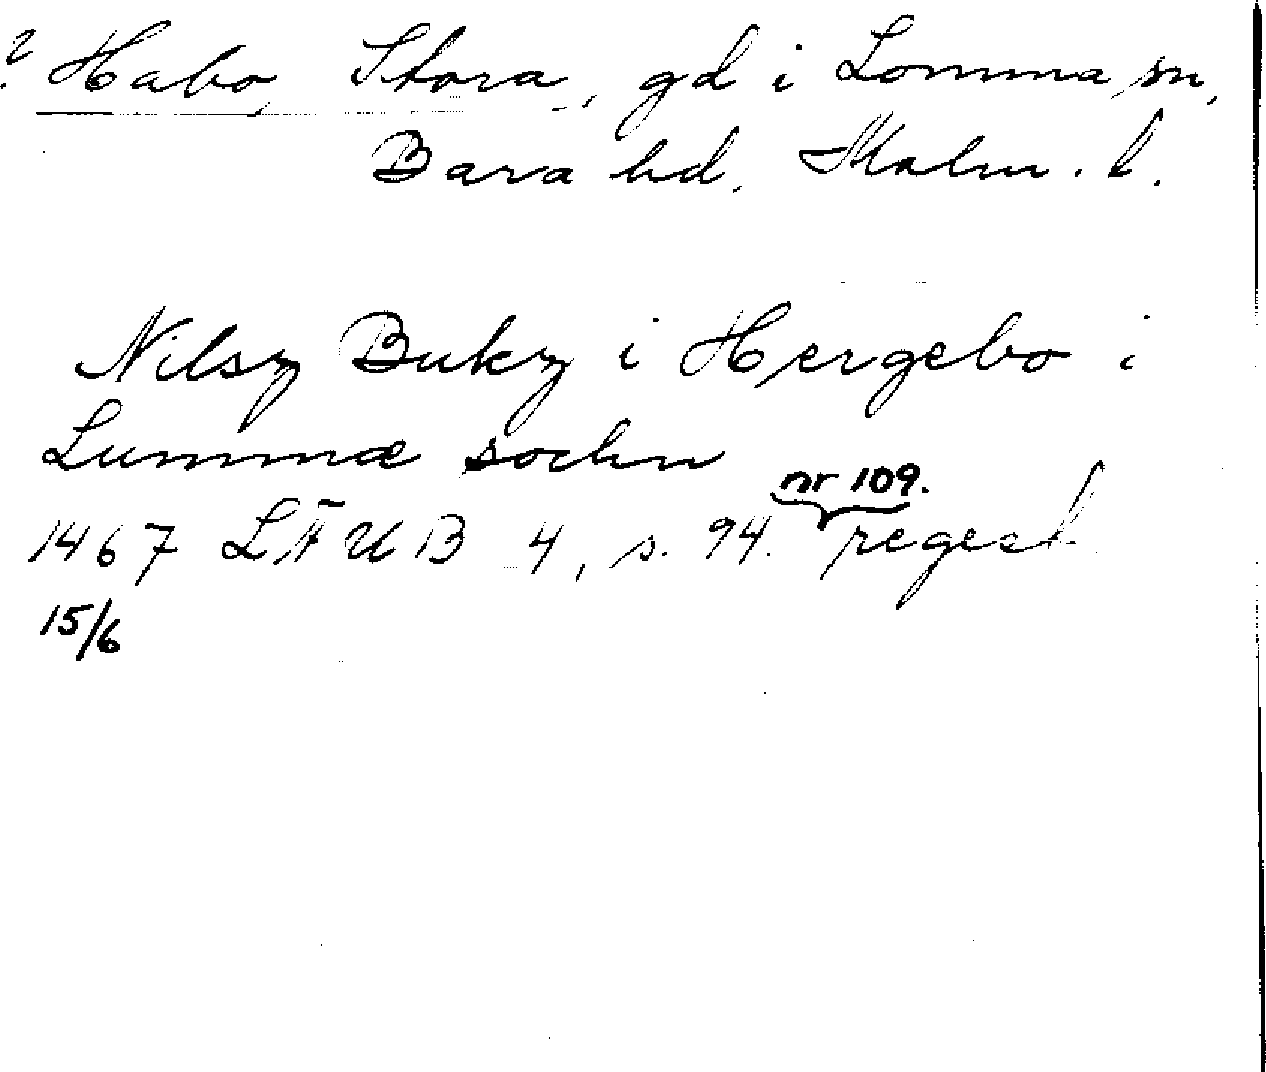 ? Habo, Stora, gd i Lomma sn,
Bara hd, Malm. l.
Nilsz Bukz i Hergebo i
Lummæ sochn
nr 109.
1467 LÄUB 4, s. 94. regest
15/6